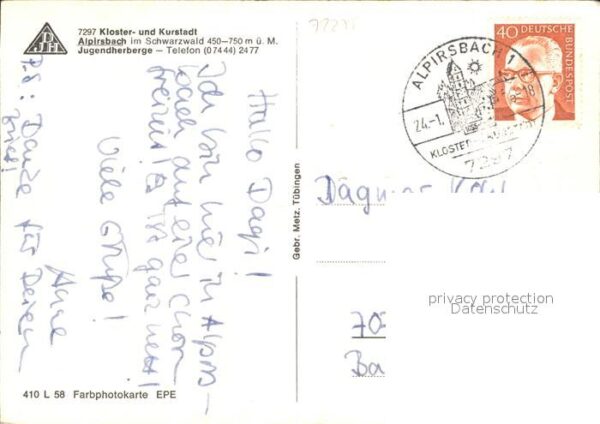 77295
DJH
7297 Kloster- und Kurstadt
Alpirsbach im Schwarzwald 450–750 m ü. M.
Jugendherberge – Telefon (07444) 2477
Hallo Dagi!
Ich bin hier in Alpirs-
bach auf einer Chor
freizeit. Es ist ganz nett!
Viele Grüße!
Anne
P.S.: Danke für Deinen
Brief!
410 L 58 Farbphotokarte EPE
Gebr. Metz, Tübingen
ALPIRSBACH 1
24.-1.
-18
KLOSTER
7297
40 DEUTSCHE
BUNDESPOST
Dagmar
privacy protection
Datenschutz
70
Ba